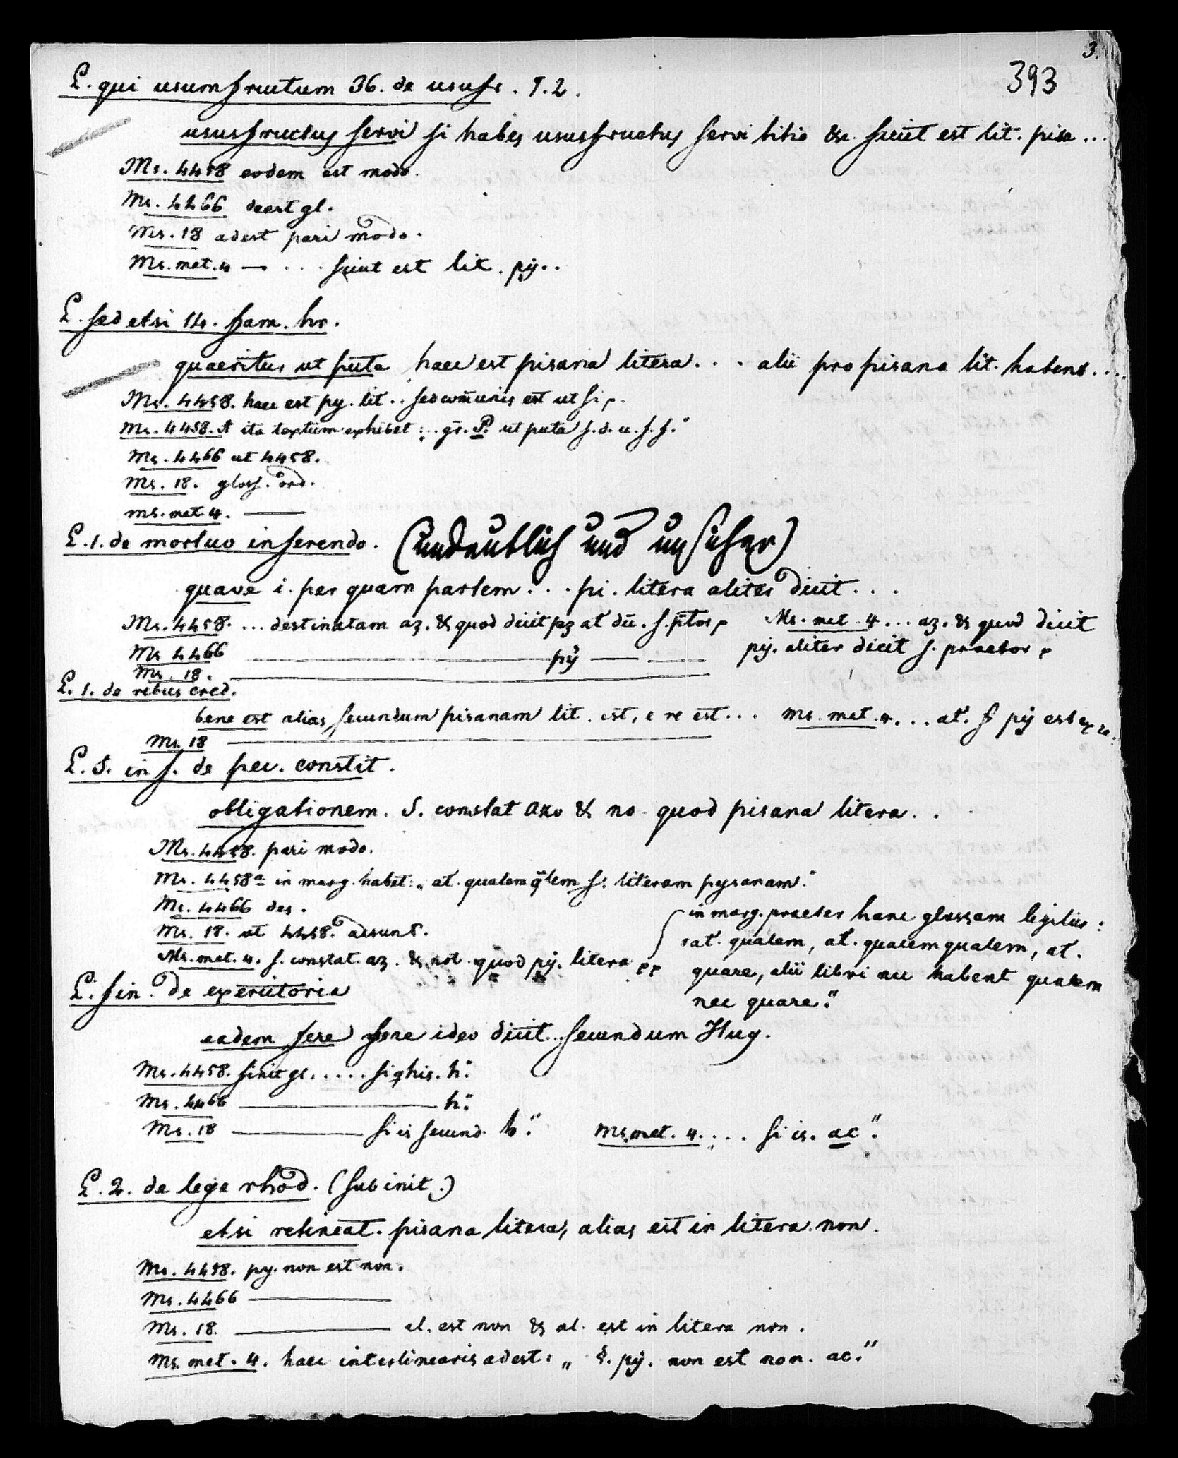 3.
393
L. qui usumfructum 36. de usufr. T. 2.
ususfructus servi si habes ususfructus servi titio &c. sicut est lit. pisa ...
Ms. 4458 eodem est modo.
Ms. 4466 deest gl.
Ms. 18 adest pari modo.
Ms. met. 4 — . ... sicut est lit. pÿ..
L. sed etsi 14. fam. hr.
quaeritur ut puta haec est pisana litera . . . alii pro pisana lit. habent....
Ms. 4458. haec est py. lit .. sed com̄unis est ut si,.
Ms. 4458. A ita textum exhibet : ut puta
Ms. 4466 ut 4458.
Ms. 18. gloss. ord.
ms. met. 4. ——
L. 1. de mortuo inferendo. (undeutlich und unsicher)
quave i. per quam partem . . . pi. litera aliter dicit . . .
Ms. 4458. ... destinatam az. & quod dicit Ms. met. 4 ... az. & quod dicit
Ms 4466 —— pÿ —— —— pÿ. aliter dicit s. praetor
Ms. 18. ——
L. 1. de rebus cred.
bene est alias secundum pisanam lit. est, e re est... Ms. met. 4. ... at. s. pÿ est ex re.
Ms. 18 ——
L. 5. in f. de pec. constit.
obligationem. S. constat azo & no quod pisana litera. .
Ms. 4458. pari modo.
Ms. 4458a in marg. habet: „ at. qualem q̄lem s. literam pysanam.“
Ms. 4466 des.
in marg. praeter hanc glossam legitur:
Ms. 18. ut 4458. adsunt.
„at. qualem, at. qualemqualem, at.
Ms. met. 4. s. constat az. & not. quod pÿ. litera
quare, alii libri nec habent qualem
nec quare.“
L. fin. de exercitoria
eadem fere fere ideo dicit.. secundum Hug.
Ms. 4458. finit gl. . . . . . h.“
Ms. 4466 —— h.“
Ms. 18 —— si is secund. h.“ Ms. met. 4. ... si is. ac“.
L. 2. de lege rhod. (sub init.)
etsi retineat. pisana litera, alias est in litera non.
Ms. 4458. py. non est non.
Ms. 4466 ——
Ms. 18. —— al. est non & al. est in litera non.
Ms. met. 4. haec interlinearis adest: „ s. pÿ. non est non. ac.“